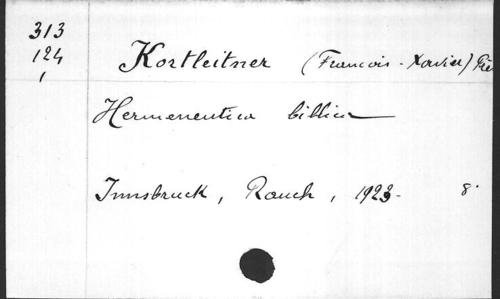 313
124
1
Kortleitner (Francois-Xavier)
Hermeneutica biblica
Innsbruck, Rauch, 1923. 8°